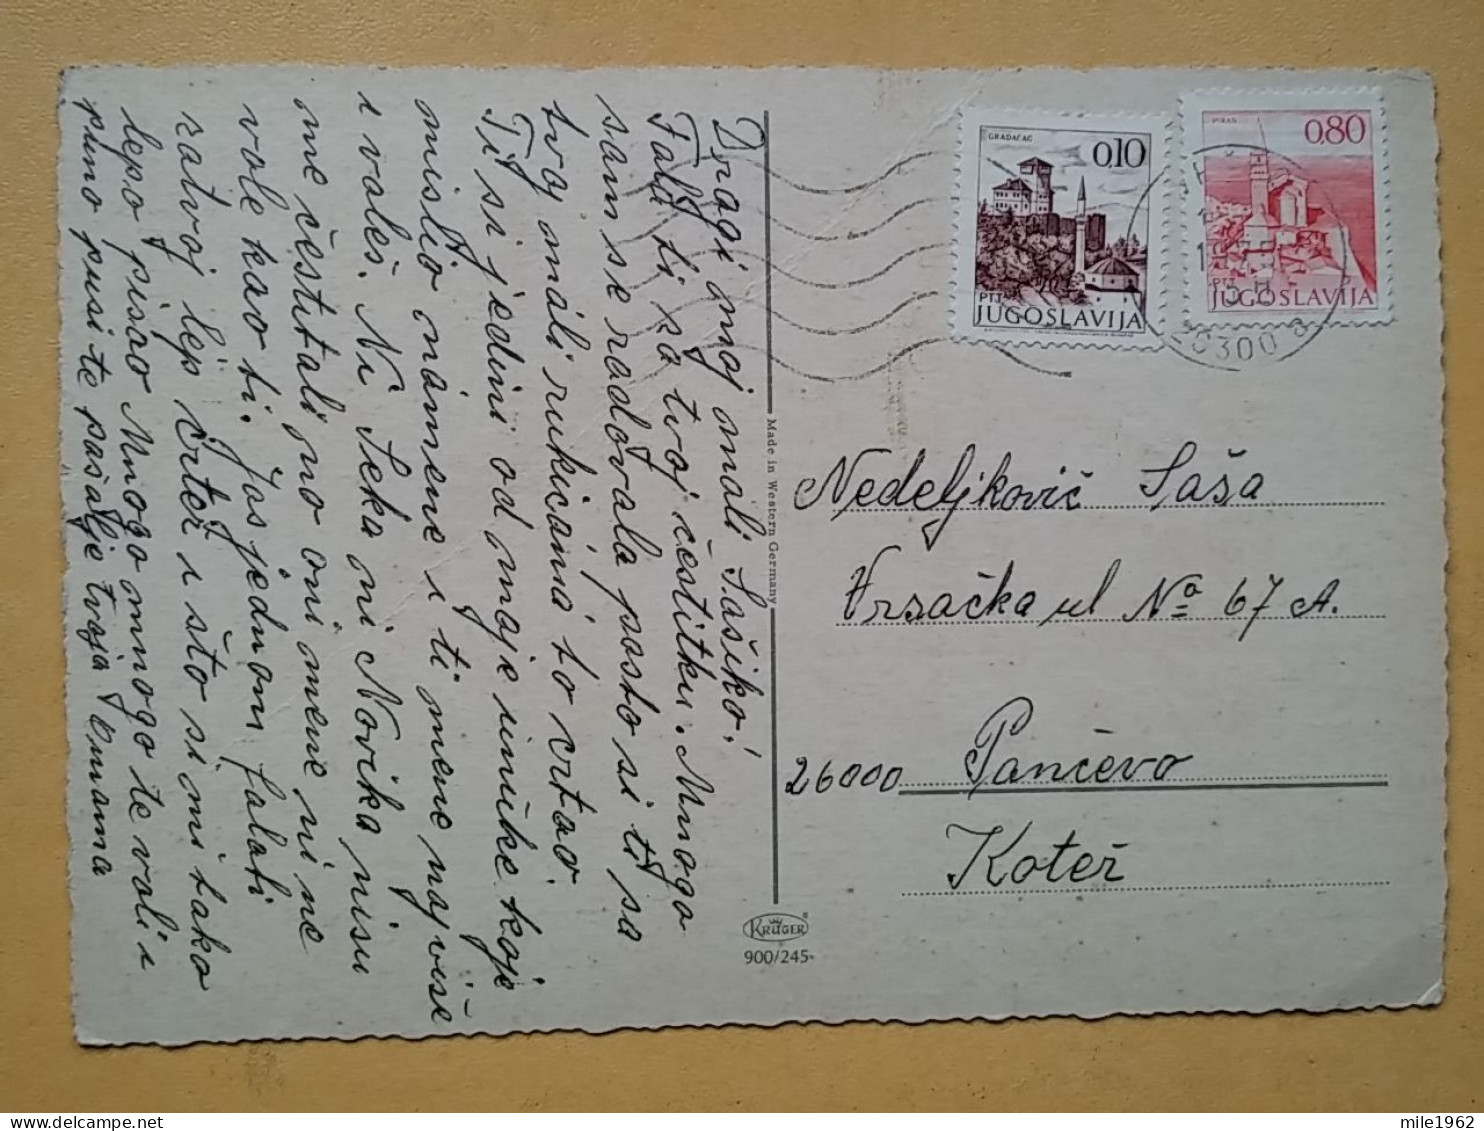 Dragi moj mali Sašiko!
Fala ti za tvoj čestitku. Mnogo
sam se radovala posto si ti sa
tvoj mali rukicama to crtao.
Ti si jedini od moje unuke koje
mislio na mene i ti mene najviše
i voleš. Ni Seka ni Novika nisu
me čestitali no oni mene ni ne
vole kao ti. Jos jednom falati
zatvoj lep crtež i što si mi tako
lepo pisao Mnogo mnogo te voli i
puno pusi te pašalje tvoja Omama
Made in Western Germany
KRÜGER
900/245
GRADAČAC
0,10
PTT
JUGOSLAVIJA
PIRAN
0,80
PTT
JUGOSLAVIJA
Nedeljkovič Saša
Vrsačka ul Nº 67 A.
26000 Pančevo
Kotež
mile1962